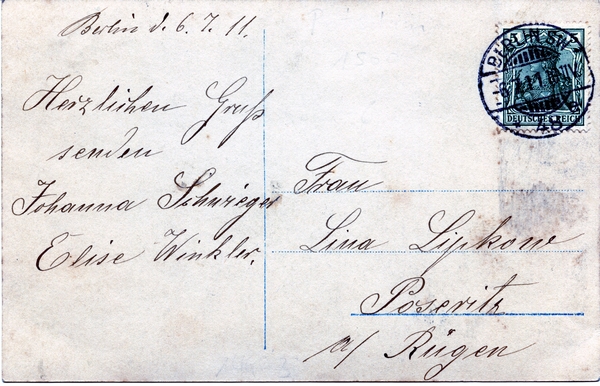 Berlin d. 6.7.11.
Herzlichen Gruß
senden
Johanna Schwieger
Elise Winkler.
Frau
Lina Lipkow
Poseritz
a/ Rügen
BERLIN SW
48
DEUTSCHES REICH